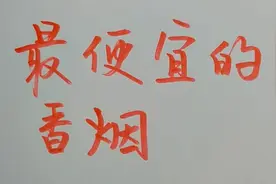 最便宜的
香烟